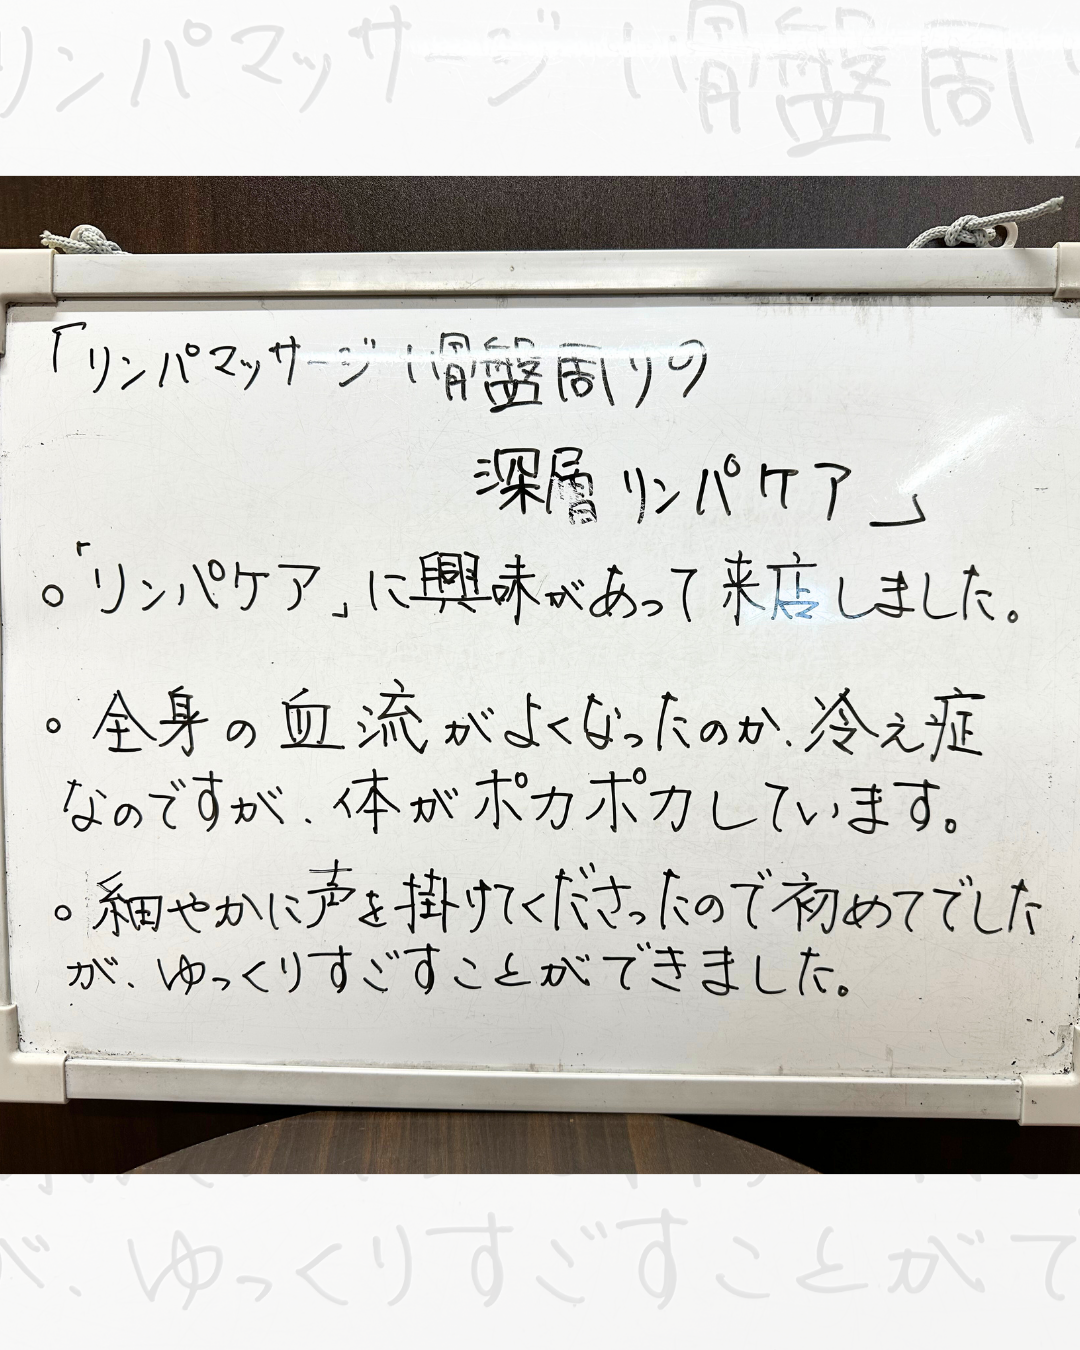 リンパマッサージ 骨盤周り
「リンパマッサージ 骨盤周りの
深層リンパケア」
○「リンパケア」に興味があって来店しました。
○ 全身の血流がよくなったのか、冷え症
なのですが、体がポカポカしています。
○ 細やかに声を掛けてくださったので初めてでした
が、ゆっくりすごすことができました。
が、ゆっくりすごすことがで